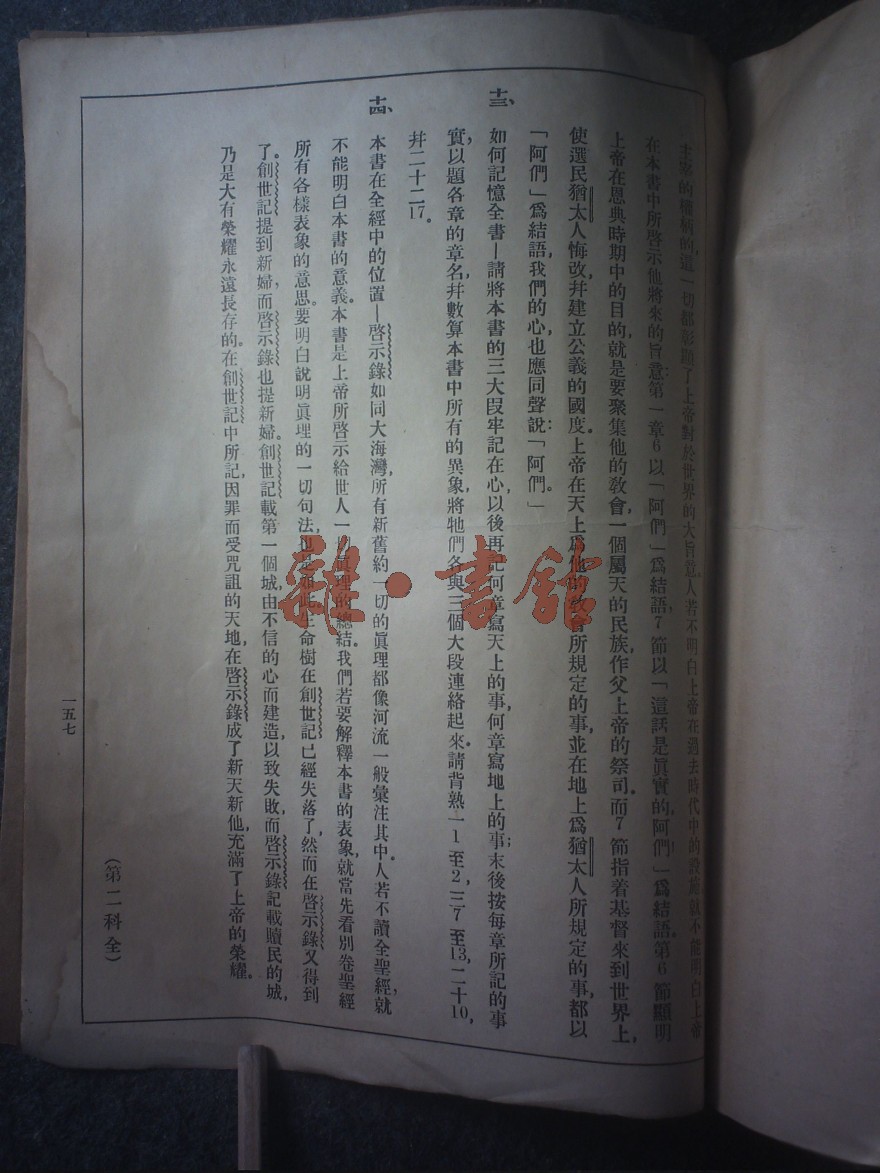 主宰的權柄的這一切都彰顯了上帝對於世界的大旨意人若不明白上帝在過去時代中的設施就不能明白上帝
在本書中所啓示他將來的旨意第一章6以「阿們」爲結語7節以「這話是眞實的阿們」爲結語。第6節顯明
上帝在恩典時期中的目的,就是要聚集他的敎會,一個屬天的民族,作父上帝的祭司。而7節指着基督來到世界上,
使選民猶太人悔改,幷建立公義的國度。上帝在天上爲他的敎會所規定的事,並在地上爲猶太人所規定的事,都以
「阿們」爲結語,我們的心也應同聲說:「阿們。」
十三、如何記憶全書—請將本書的三大段牢記在心,以後再記何章寫天上的事,何章寫地上的事;末後按每章所記的事
實,以題各章的章名,幷數算本書中所有的異象,將牠們各與三個大段連絡起來。請背熟一1至2,三7至13,二十10,
幷二十二17。
十四、本書在全經中的位置—啓示錄如同大海灣,所有新舊約一切的眞理都像河流一般彙注其中。人若不讀全聖經,就
不能明白本書的意義。本書是上帝所啓示給世人一切眞理的總結。我們若要解釋本書的表象,就當先看別卷聖經
所有各樣表象的意思。要明白說明眞理的一切句法,也是如此。生命樹在創世記已經失落了,然而在啓示錄又得到
了。創世記提到新婦,而啓示錄也提新婦。創世記載第一個城,由不信的心而建造,以致失敗,而啓示錄記載贖民的城,
乃是大有榮耀永遠長存的。在創世記中所記,因罪而受咒詛的天地,在啓示錄成了新天新他,充滿了上帝的榮耀。
(第二科全)
一五七
雜·書館